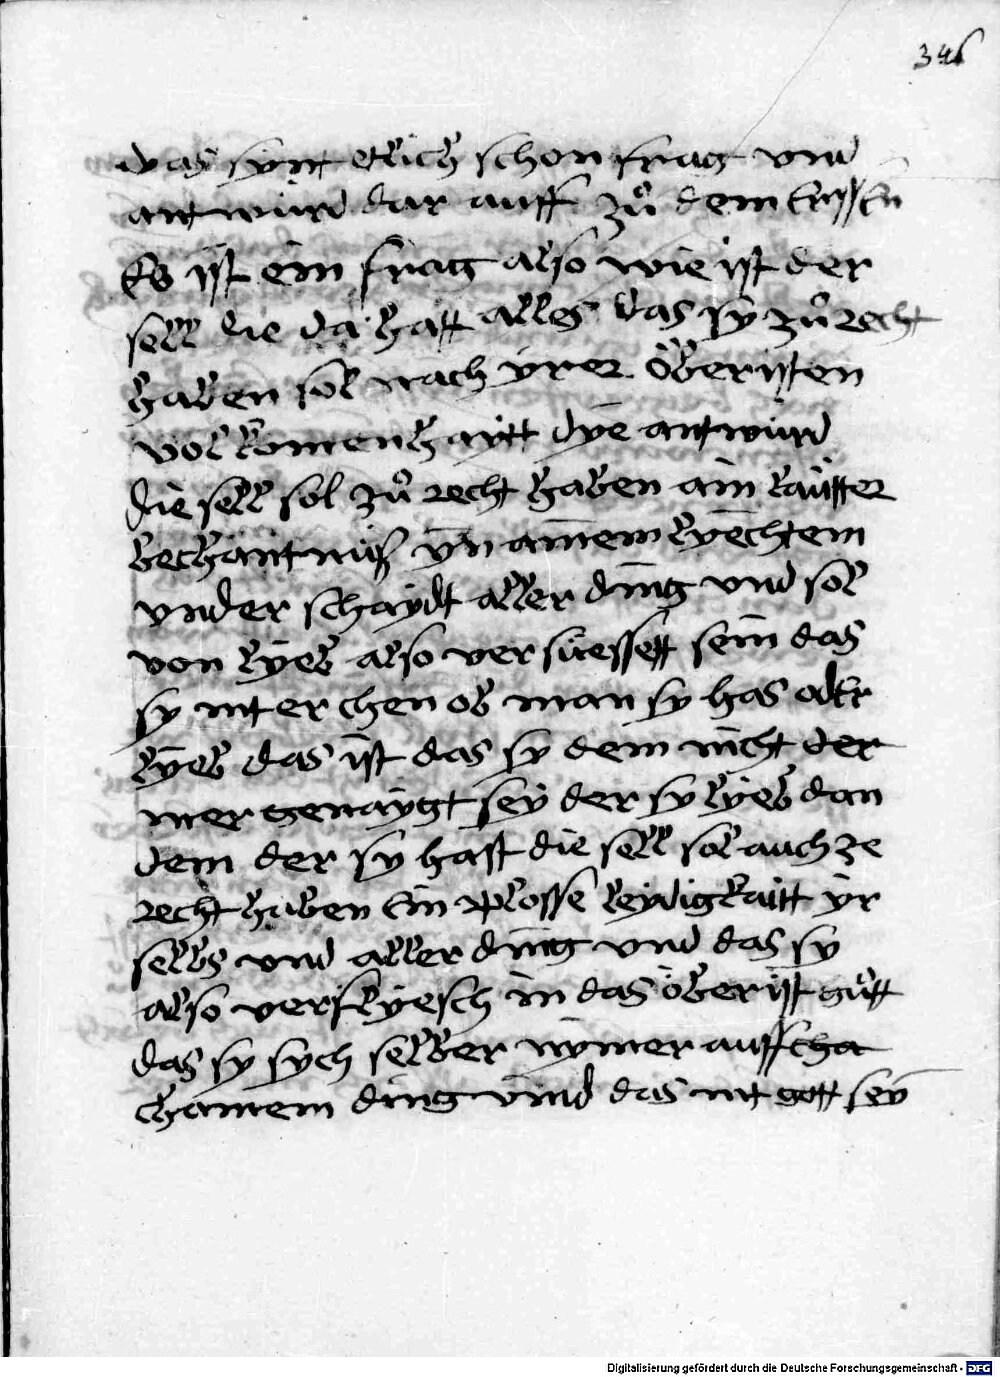 346
das synt etlich schon frag vnd
antwurd dar auff zů dem Ersstn
Es ist ein frag also wie ist der
sell die da hatt alles das sy zů recht
haben sol nach yrer öberisten
volkomenhaytt dye antwurd
die sell sol zů recht haben ain lautter
bechantnuß vn ainem lyechtem
vnder schaydt aller ding vnd sol
von lyeb also versuessett sein das
sy nit erchen ob man sy has oder
lyeb das ist das sy dem nicht der
mer genaygt sey der sy lyeb dan
dem der sy hast die sell sol auch ze
recht haben Ein plosse leydigkaitt yr
selbs vnd aller ding vnd das sy
also verflyesch in das öberist gůtt
das sy sych selber nymer auff cha
chainem ding vind das nit gott sey
Digitalisierung gefördert durch die Deutsche Forschungsgemeinschaft - DFG